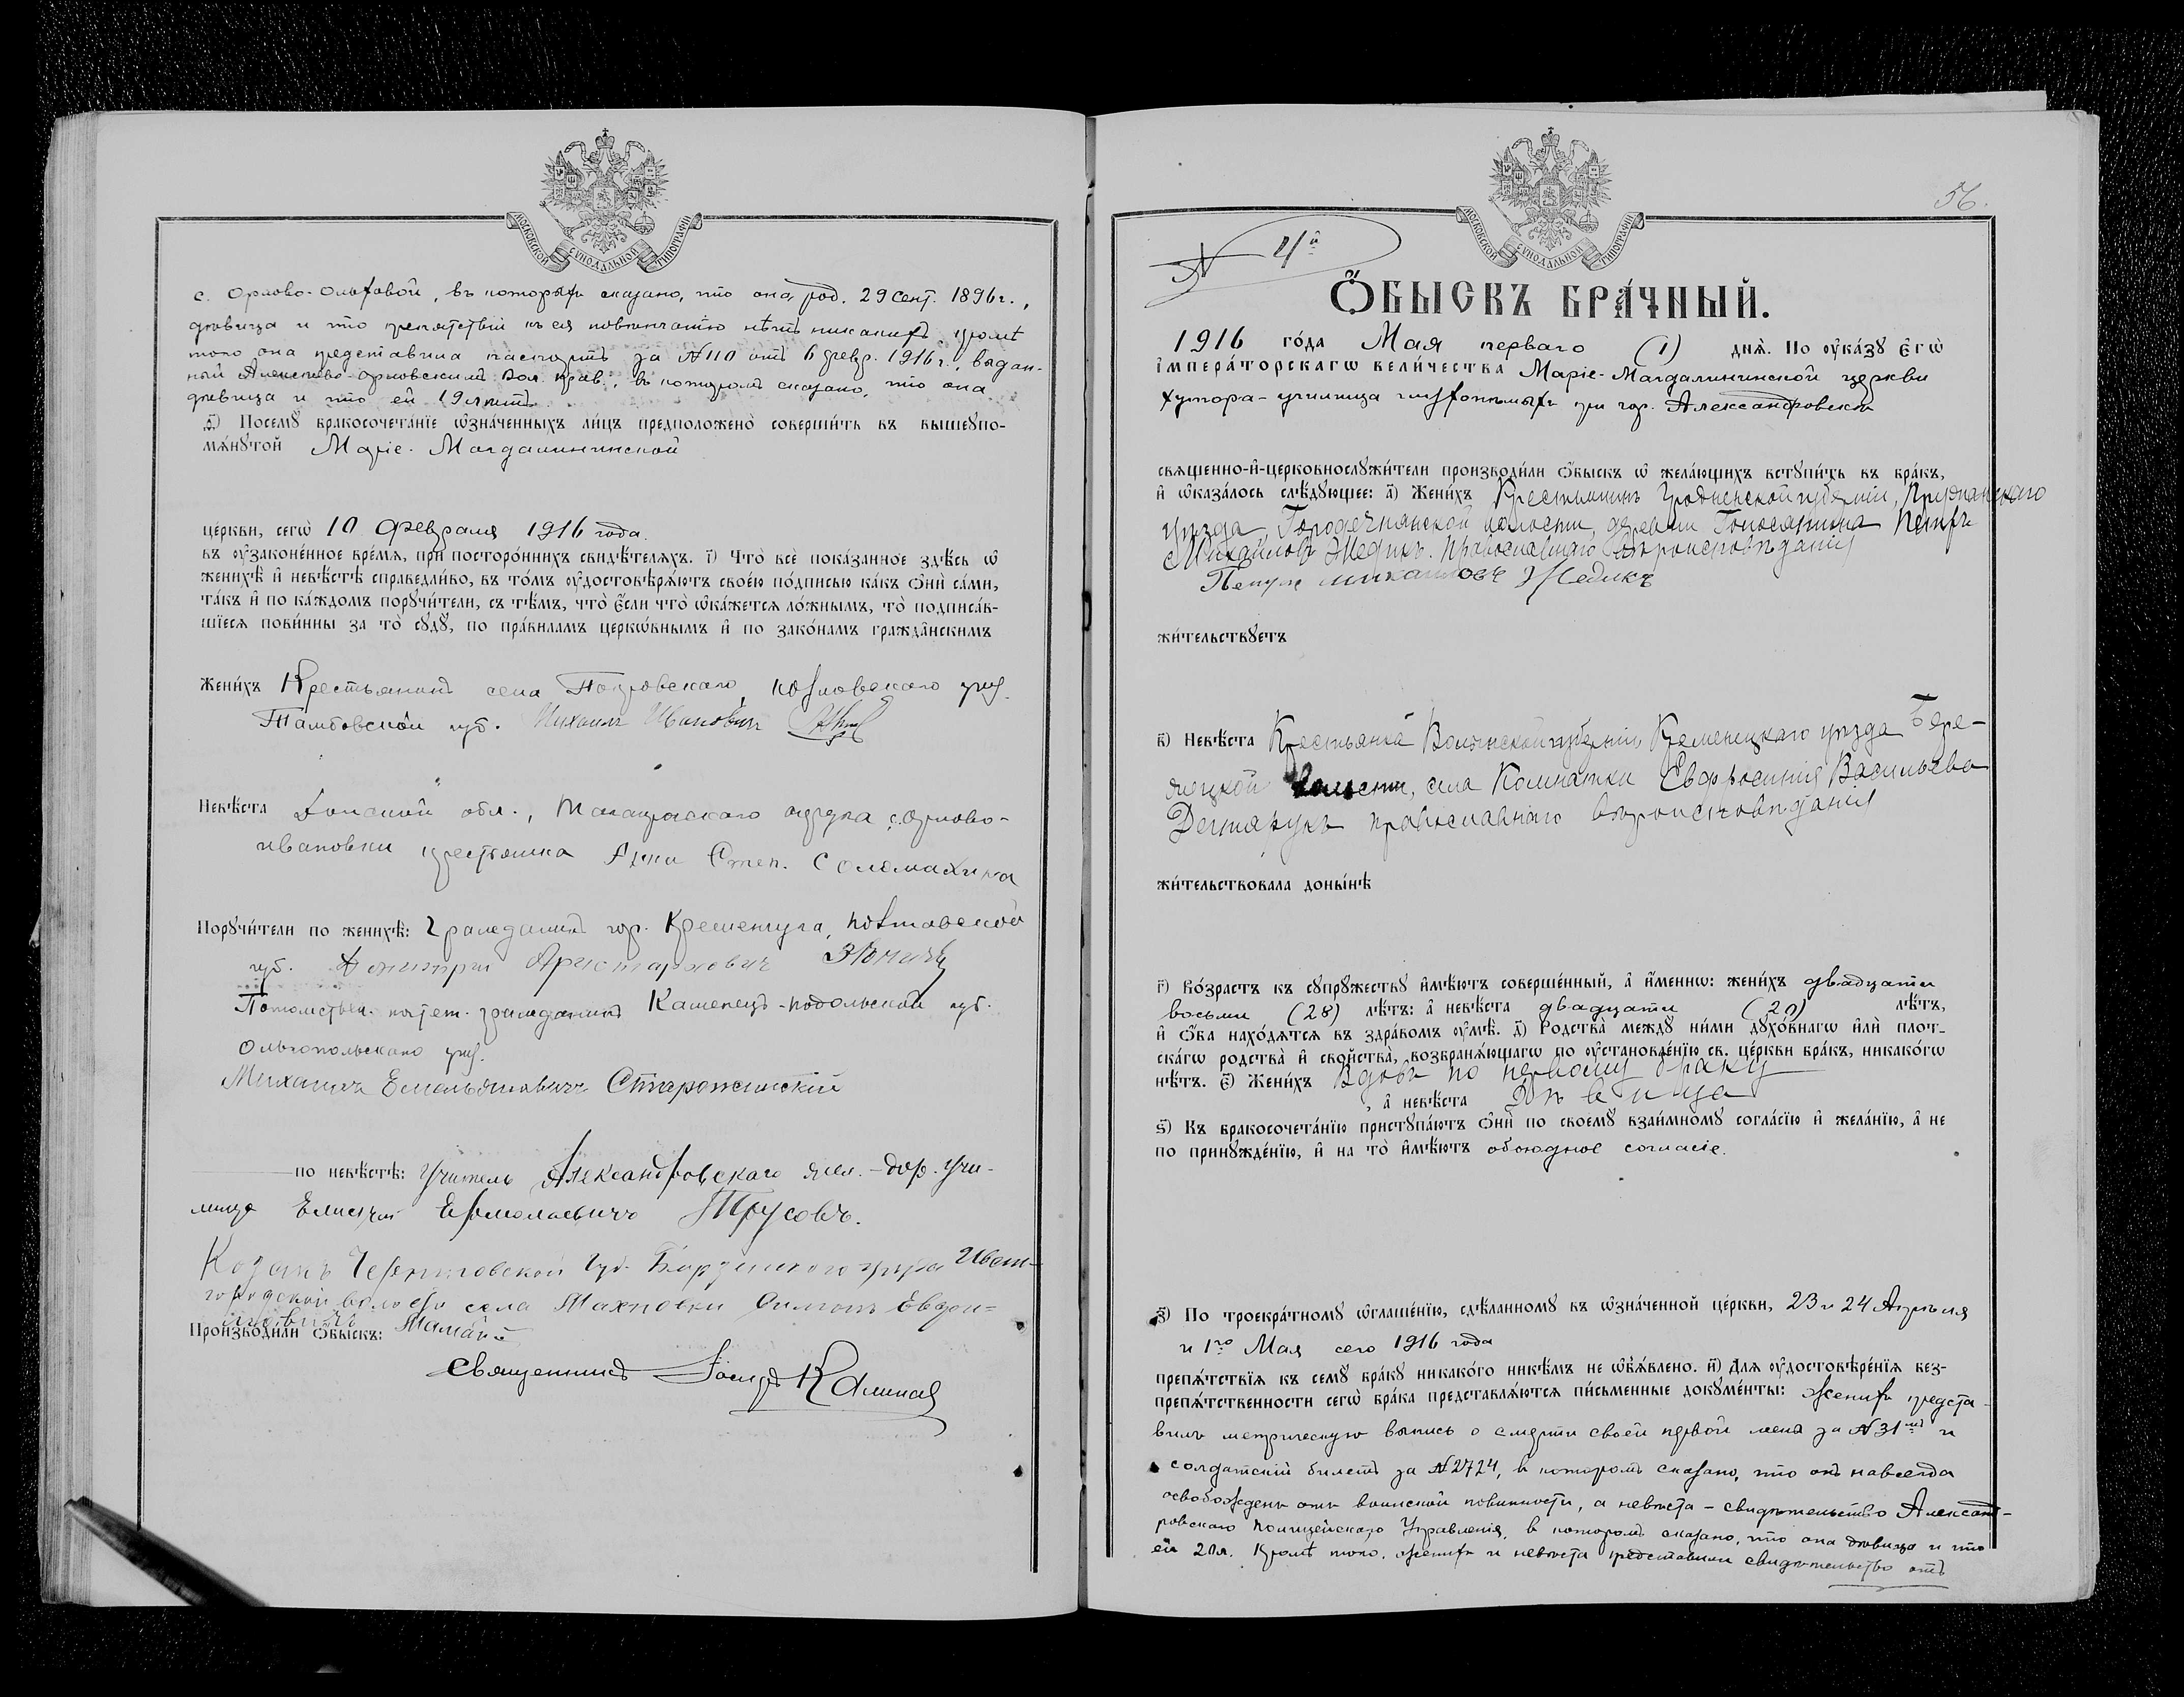 МОСКОВСКОЙ СѴНОДАЛЬНОЙ ТИПОГРАФІИ
с. Орлово-Ольховой, въ которыхъ сказано, что она род. 29 сент. 1896 г.,
дѣвица и что препятствій къ ея повѣнчанію нѣтъ никакихъ, кромѣ
того она представила паспортъ за № 110 отъ 6 февр. 1916 г., выдан-
ный Алексѣево-Орловскимъ Вол. прав., въ которомъ сказано, что она
дѣвица и что ей 19 лѣтъ.
д҃і) Посемꙋ̀ бракосочета́нїе ѡ҆зна́ченныхъ ли́цъ предположено̀ соверши́ть въ вышеꙋпо-
мѧ́нꙋтой Маріе-Магдалининской
це́ркви, сегѡ̀ 10 февраля 1916 года
въ ᲂу҆зако́ненное вре́мѧ, прѝ посторо́ннихъ свидѣ́телѧхъ. г҃і) Что̀ всѐ пока́занное здѣ́сь ѡ҆
женихѣ̀ и҆ невѣ́стѣ справедли́во, въ то́мъ ᲂу҆достовѣрѧ́ютъ свое́ю по́дписью ка́къ ѻ҆нѝ са́ми,
та́къ и҆ по ка́ждомъ порꙋчи́тели, съ тѣ́мъ, что̀ є҆́сли что̀ ѡ҆ка́жетсѧ ло́жнымъ, то̀ подписа́в-
шїесѧ пови́нны за то̀ сꙋдꙋ̀, по пра́виламъ церкѡ́внымъ и҆ по зако́намъ гражда́нскимъ
Жени́хъ Крестьянинъ села Покровскаго, Козловскаго уѣз.
Тамбовской губ. Михаилъ Ивановичъ
Невѣ́ста Донской обл., Таганрогскаго округа с. Орлово-
Ивановки крестьянка Анна Степ. Соломахина
Порꙋчи́тели по женихѣ̀: Гражданинъ гор. Кременчуга, Полтавской
губ. Дмитрій Аристарховичъ
Потомствен. почетн. гражданинъ Каменецъ-Подольской губ.
Ольгопольскаго уѣз.
Михаилъ Емельяновичъ Старожинскій
по невѣ́стѣ: Учитель Александровскаго жел.-дор. учи-
лища Елисей Ермолаевичъ Трусовъ.
Козакъ Черниговской Губ. Борзенскаго уѣзда Иван-
городской волости села Махновки Симонъ Евдоки-
мовичъ Мамай
Произво́дили ѻ҆́быскъ:
Священникъ Іосифъ Калинъ
56.
МОСКОВСКОЙ СѴНОДАЛЬНОЙ ТИПОГРАФІИ
№ 4й
Ѻ҆́БЫСКЪ БРА́ЧНЫЙ.
1916 го́да Мая перваго (1) днѧ̀. По ᲂу҆ка́зꙋ є҆гѡ̀
и҆мпера́торскагѡ вели́чества Маріе-Магдалининской церкви
хутора-училища глухонѣмыхъ при гор. Александровскѣ
свѧщенно-и҆-церковнослꙋжи́тели производи́ли ѻ҆́быскъ ѡ҆ жела́ющихъ встꙋпи́ть въ бра́къ,
и҆ ѡ҆каза́лось слѣ́дꙋющее: а҃) Жени́хъ Крестьянинъ Гродненской губерніи, Пружанскаго
уѣзда Городечнянской волости, деревни Голосятина Петръ
Михайловъ Жедикъ. Православнаго вѣроисповѣданія
Петръ михаиловъ Жедикъ
жи́тельствꙋетъ
в҃) Невѣ́ста Крестьянка Волынской губерніи, Кременецкаго уѣзда Бере-
жецкой волости, села Комнатки Евфросинія Васильева
Дегтярукъ православнаго вѣроисповѣданія
жи́тельствовала доны́нѣ
г҃) Во́зрастъ къ сꙋпрꙋ́жествꙋ и҆мѣ́ютъ соверше́нный, а҆ и҆́меннѡ: жени́хъ двадцати
восьми (28) лѣ́тъ: а҆ невѣ́ста двадцати (20) лѣ́тъ,
и҆ ѻ҆́ба нахо́дѧтсѧ въ здра́вомъ ᲂу҆мѣ̀. д҃) Родства̀ междꙋ̀ ни́ми дꙋхо́внагѡ и҆лѝ плот-
ска́гѡ родства̀ и҆ сво́йства̀, возбранѧ́ющагѡ по ᲂу҆становле́нїю св. це́ркви бра́къ, никако́гѡ
нѣ́тъ. є҃) Жени́хъ Вдовъ по первому браку
, а҆ невѣ́ста Дѣвица
ѕ҃) Къ бракосочета́нїю пристꙋпа́ютъ ѻ҆нѝ по своемꙋ̀ взаи́мномꙋ согла́сїю и҆ жела́нїю, а҆ не
по принꙋжде́нїю, и҆ на то̀ и҆мѣ́ютъ обоюдное согласіе.
з҃) По троекра́тномꙋ ѡ҆глаше́нїю, сдѣ́ланномꙋ въ ѡ҆зна́ченной це́ркви, 23 и 24 Апрѣля
и 1го Мая сего 1916 года
препѧ́тствїѧ къ семꙋ̀ бра́кꙋ никако́го никѣ́мъ не ѡ҆б̾ѧ́влено. и҃) Длѧ̀ ᲂу҆достовѣре́нїѧ без-
препѧ́тственности сегѡ̀ бра́ка представлѧ́ютсѧ пи́сьменные докꙋме́нты: женихъ предста-
вилъ метрическую выпись о смерти своей первой жены за № 31мъ и
солдатскій билетъ за № 2724, въ которомъ сказано, что онъ навсегда
освобожденъ отъ воинской повинности, а невѣста - свидѣтельство Александ-
ровскаго Полицейскаго Управленія, въ которомъ сказано, что она дѣвица и что
ей 20 л. Кромѣ того, женихъ и невѣста представили свидѣтельство отъ